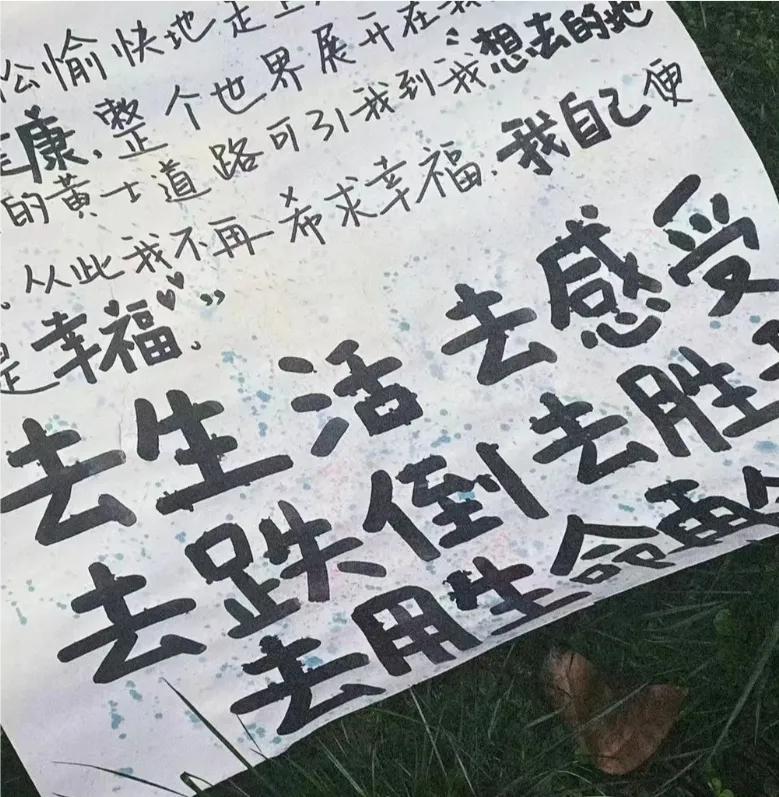 松愉快地走上
健康,整个世界展开在我
的黄士道路可引我到我想去的地
.从此我不再希求幸福.我自己便
是幸福。”
去生活 去感受
去跌倒 去胜
去用生命再